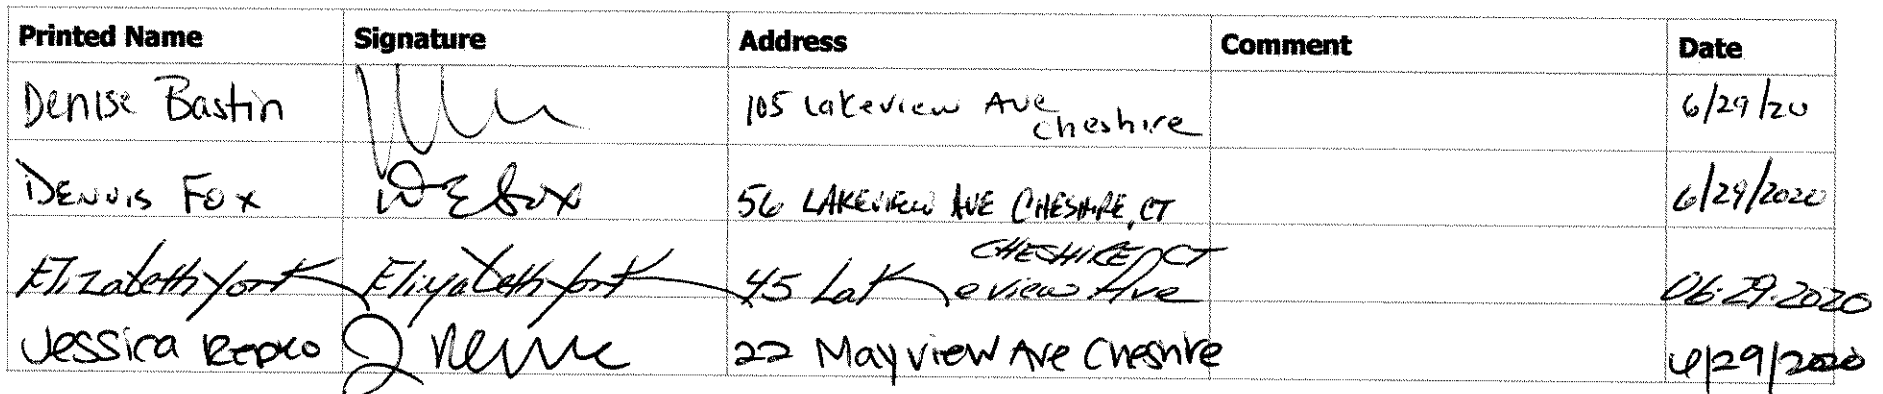 Printed Name Signature Address Comment Date
Denise Bastin 105 Lakeview Ave Cheshire 6/29/20
Dennis Fox DE Fox 56 LAKEVIEW AVE CHESHIRE, CT 6/29/2020
Elizabeth York Elizabeth York 45 Lakeview Ave CHESHIRE, CT 06.29.2020
Jessica Repko 22 Mayview Ave Cheshire 6/29/2020